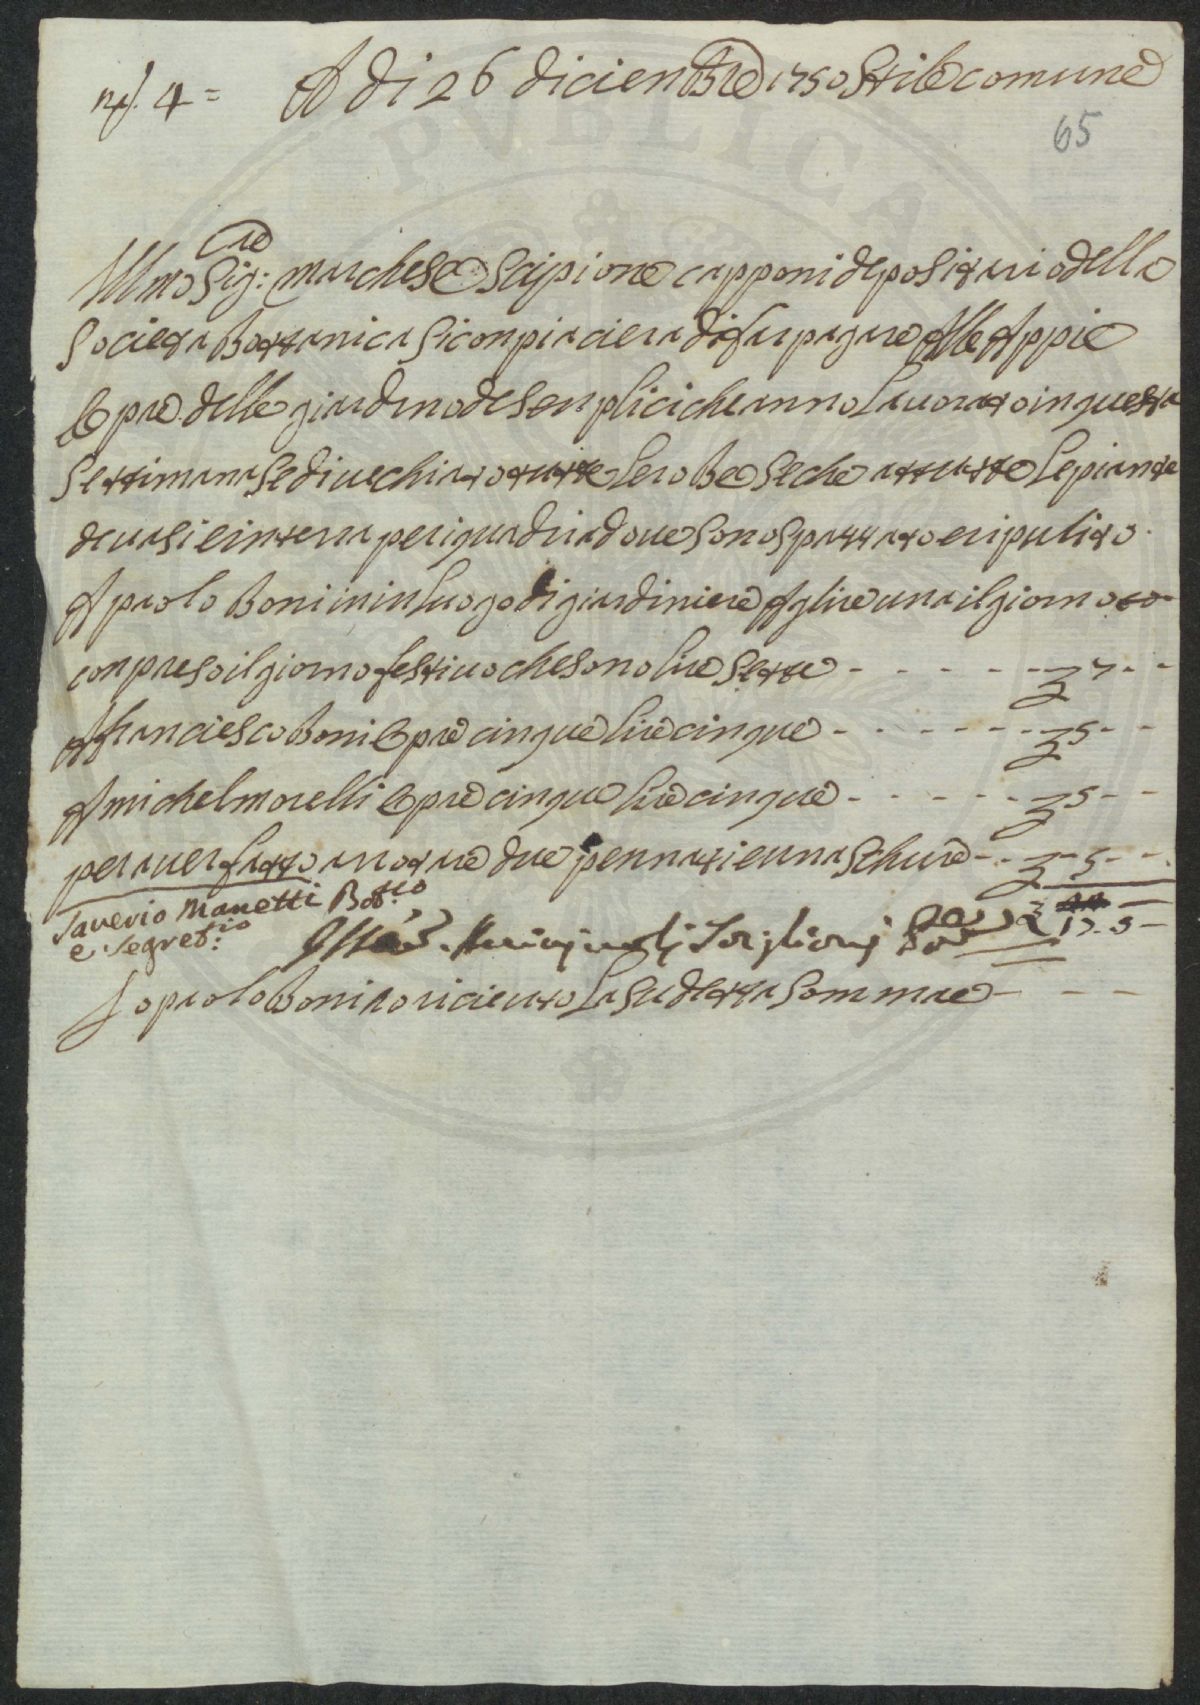 N.º 4 = A di 26 dicienbre 1750 Stile comune
65
Ill mo Sig:re marchese Scipione capponi depositario della
Societa Bottanica Si conpiaciera di far pagare Alle Appie
le opre delle giardino de Senplici che anno Lauorato in questa
Settimana
de uasi e in terra per i quadri a doue Sono Spazzato e ripulito
A paolo Boni in in Luogo di giardiniere A lire una il giorno
conpreso il giorno festiuo che sono lire Sette - - - - - - 7 - -
A franciesco Boni opre cinque lire cinque - - - - - - 5 - -
A michel morelli opre cinque lire cinque - - - - - - 5 - -
per auer fatto arrotare due pennati e una Schure - - - 5 - -
Saverio Manetti Bot.co
e Segret.rio
17 - 5 -
Io paolo Boni o riceuto La Sudetta Somma e - - - -
PVBLICA